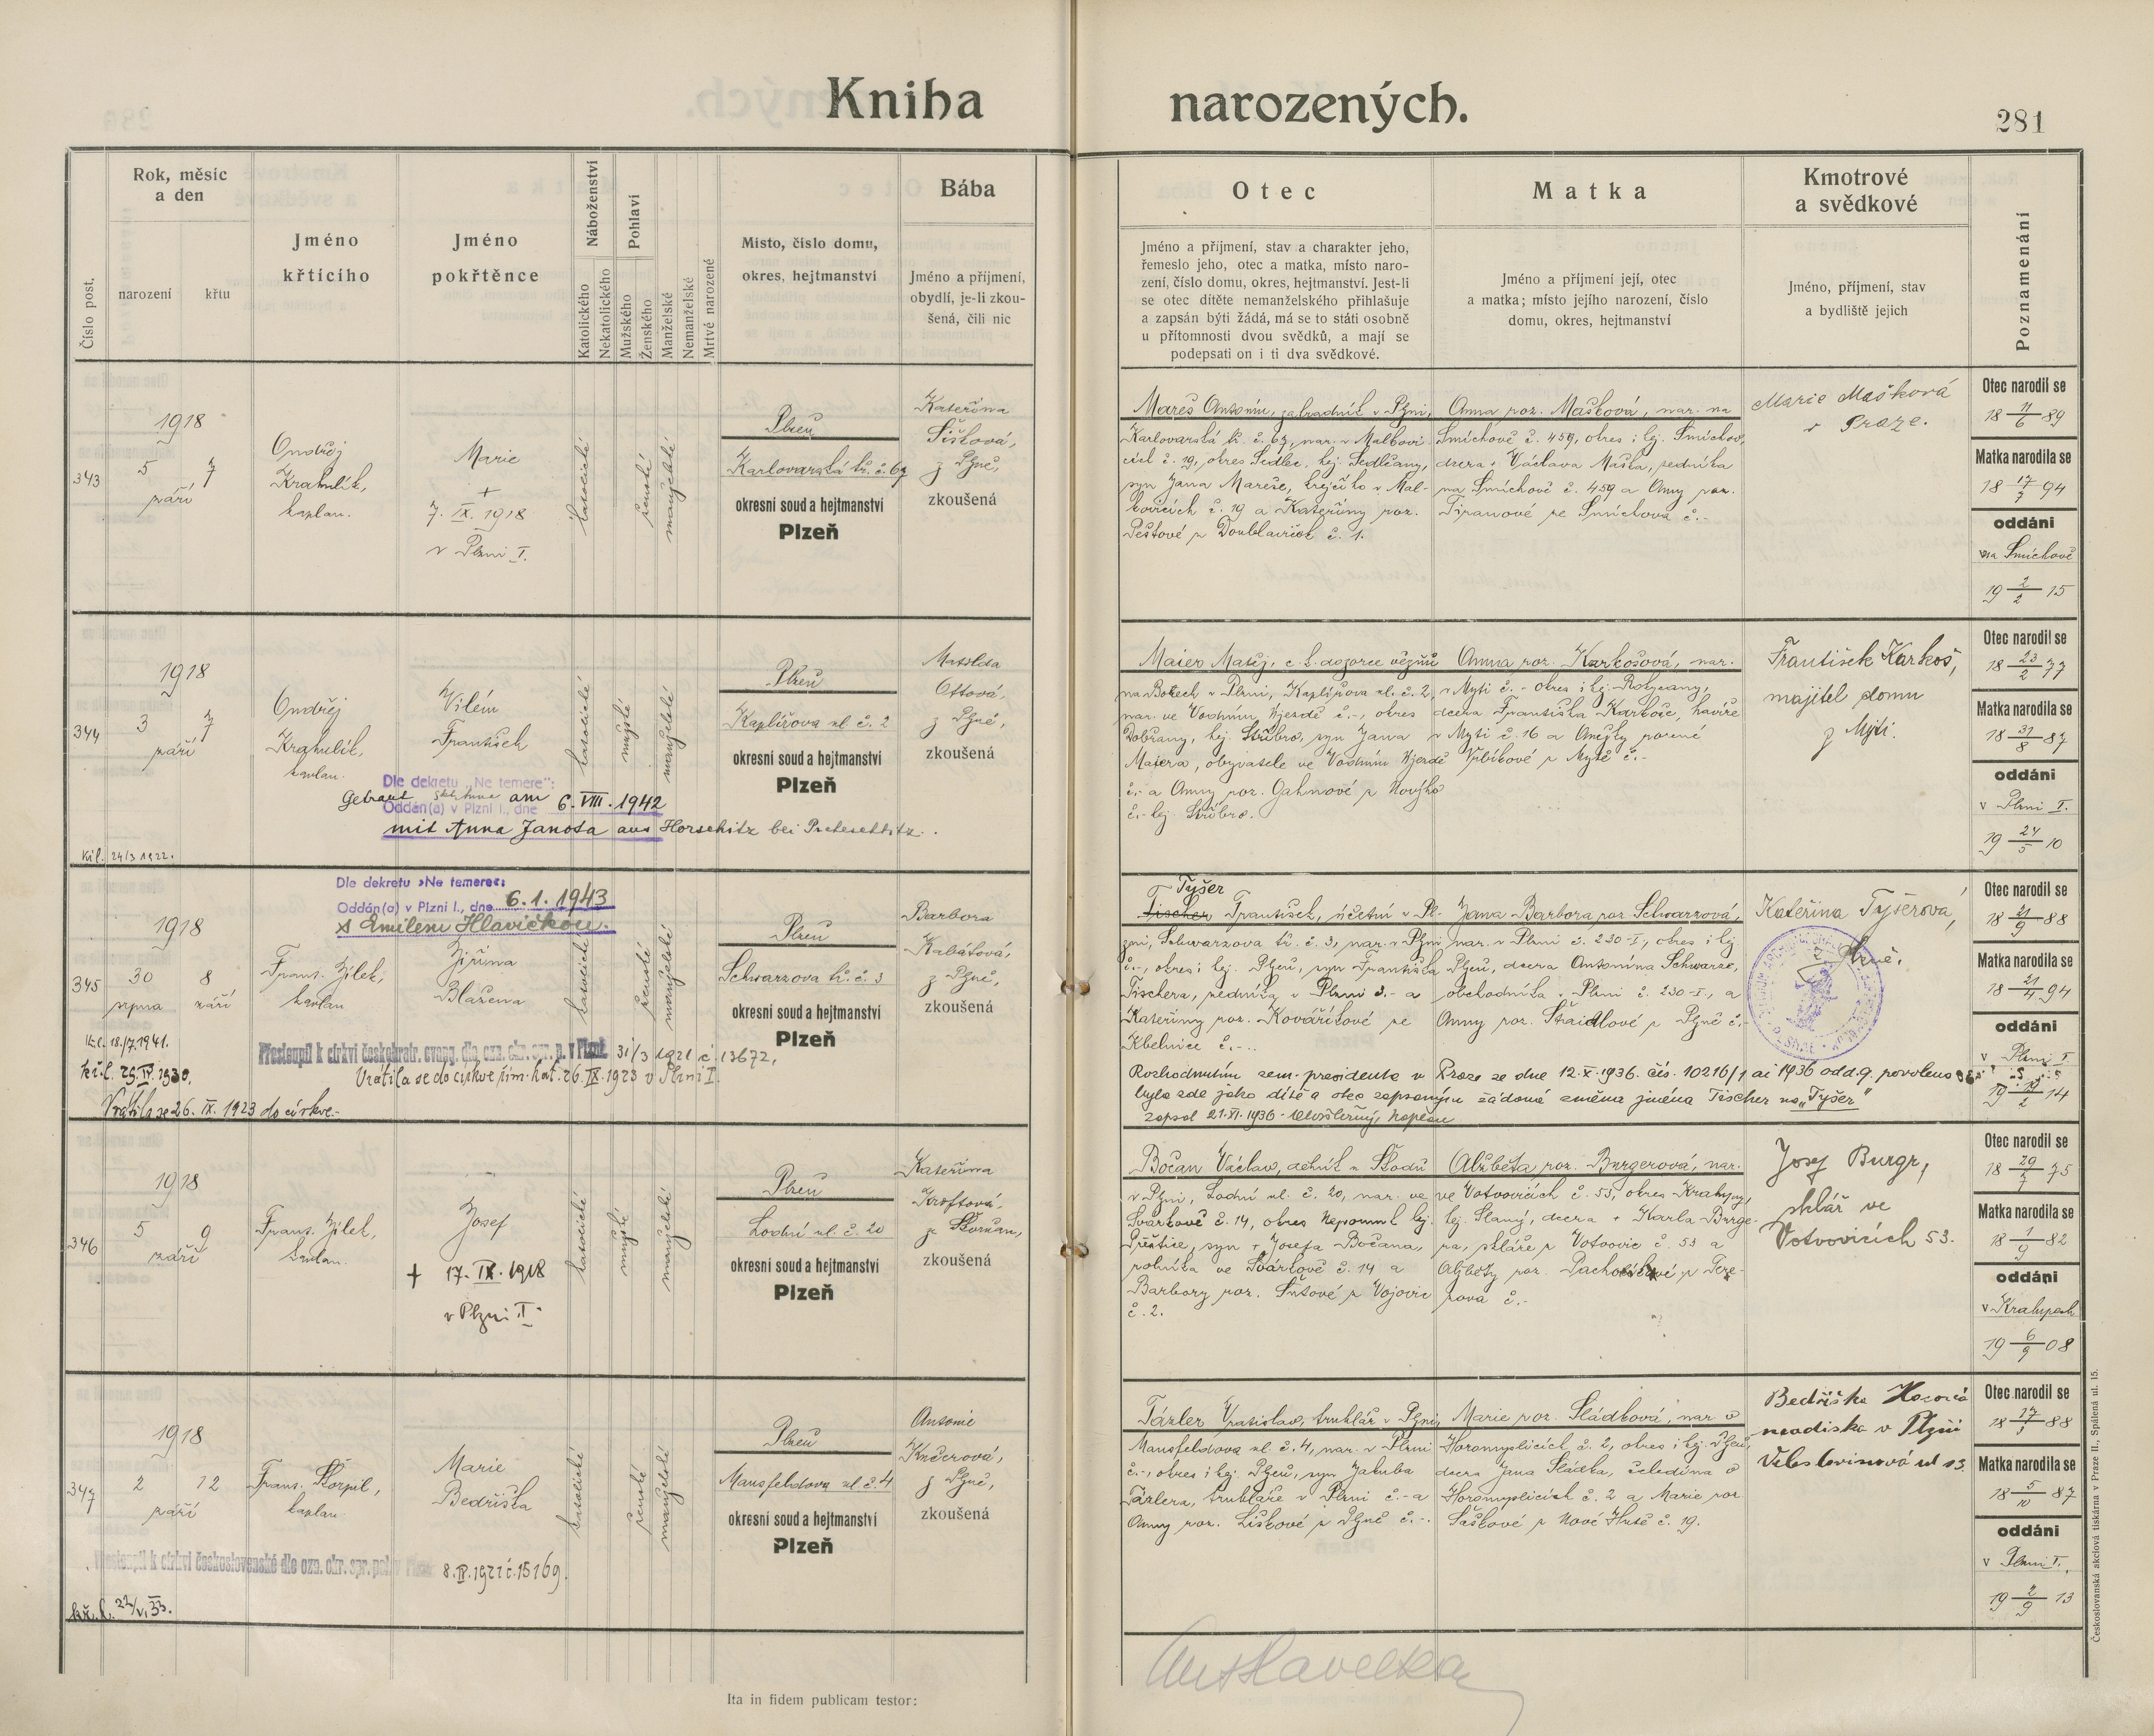 Kniha narozených.
281
Číslo post.
Rok, měsíc
a den
narození
křtu
Jméno
křtícího
Jméno
pokřtěnce
Náboženství
Katolického
Nekatolického
Pohlaví
Mužského
Ženského
Manželské
Nemanželské
Mrtvě narozené
Místo, číslo domu,
okres, hejtmanství
Bába
Jméno a příjmení,
obydlí, je-li zkou-
šená, čili nic
Otec
Jméno a příjmení, stav a charakter jeho,
řemeslo jeho, otec a matka, místo naro-
zení, číslo domu, okres, hejtmanství. Jest-li
se otec dítěte nemanželského přihlašuje
a zapsán býti žádá, má se to státi osobně
u přítomnosti dvou svědků, a mají se
podepsati on i ti dva svědkové.
Matka
Jméno a příjmení její, otec
a matka; místo jejího narození, číslo
domu, okres, hejtmanství
Kmotrové
a svědkové
Jméno, příjmení, stav
a bydliště jejich
Poznamenání
343
1918
5 7
září
Ondřej
Krahulík,
kaplan.
Marie
+
7. IX. 1918
v Plzni I.
katolické
ženské
manželské
Plzeň
Karlovarská tř. č. 67
okresní soud a hejtmanství
Plzeň
Kateřina
Šišková,
z Plzně,
zkoušená
Mareš Antonín, zahradník v Plzni,
Karlovarská tř. č. 67, nar. v Malkovi-
cích č. 19, okres Sedlec, hej. Sedlčany,
syn Jana Mareše, krejčího v Mal-
kovicích č. 19 a Kateřiny roz.
Peštové z Doublaviček č. 1.
Anna roz. Mašková, nar. na
Smíchově č. 459, okres i hej. Smíchov,
dcera + Václava Maška, zedníka
na Smíchově č. 459 a Anny roz.
Tipanové ze Smíchova č. -
Marie Mašková
v Praze.
Otec narodil se
18 11/6 89
Matka narodila se
18 17/7 94
oddáni
na Smíchově
19 2/2 15
344
1918
3 7
září
Ondřej
Krahulík,
kaplan.
Vilém
František
katolické
mužské
manželské
Plzeň
Kaplířova ul. č. 2
okresní soud a hejtmanství
Plzeň
Matylda
Ottová,
z Plzně,
zkoušená
Dle dekretu „Ne temere":
Oddán(a) v Plzni I., dne
Getraut am 6. VIII. 1942
mit Anna Janota aus Horschitz bei
Kř. l. 24/3 1922.
Maier Matěj, c. k. dozorce vězňů
na Borech v Plzni, Kaplířova ul. č. 2,
nar. ve Vodním Újezdě č. -, okres
Dobřany, hej. Stříbro, syn Jana
Maiera, obyvatele ve Vodním Újezdě
č. - a Anny roz. Gahnové z
č. - hej. Stříbro.
Anna roz. Karkošová, nar.
v Mýti č. - okres i hej. Rokycany,
dcera Františka Karkoše, havíře
v Mýti č. 16 a Anežky rozené
z Mýtě č. -
František Karkoš,
majitel domu
z Mýti.
Otec narodil se
18 23/2 77
Matka narodila se
18 31/8 87
oddáni
v Plzni I.
19 24/5 10
345
Dle dekretu »Ne temere«:
Oddán(a) v Plzni I., dne 6. 1. 1943
s Emilem Hlavičkou.
1918
30 8
srpna září
Frant. Jílek,
kaplan
Jiřina
Blažena
katolické
ženské
manželské
Plzeň
Schwarzova tř. č. 3
okresní soud a hejtmanství
Plzeň
Barbora
Kabátová,
z Plzně,
zkoušená
Kř. l. 18./7. 1941.
kř. l. 29. IV. 1930.
Přestoupil k církvi českobratr. evang. dle ozn. okr. spr. p. v Plzni 31/3 1921 č. 13672,
Vrátila se do církve řím. kat. 26. IX. 1923 v Plzni I.
Vrátila se 26. IX. 1923 do církve.-
Tyšer
Fischer František, účetní v Pl-
zni, Schwarzova tř. č. 3, nar. v Plzni
č. -, okres i hej. Plzeň, syn Františka
Fischera, zedníka v Plzni č. - a
Kateřiny roz. Kovaříkové ze
Kbelnice č. -.
Jana Barbora roz. Schwarzová,
nar. v Plzni č. 230-I, okres i hej.
Plzeň, dcera Antonína Schwarze,
obchodníka v Plzni č. 230-I., a
Anny roz. Štaidlové z Plzně č. -
Kateřina Tyšerová,
z Plzně.
Rozhodnutím zem. presidenta v Praze ze dne 12. X. 1936. čís. 10216/1 ai 1936 odd. 9. povolena
byla zde jako dítě a otec zapsaným žádaná změna jména Fischer na „Tyšer"
zapsal 21. XI. 1936
Otec narodil se
18 21/9 88
Matka narodila se
18 21/4 94
oddáni
v Plzni I.
346
1918
5 9
září
Frant. Jílek,
kaplan.
Josef
+ 17. IX. 1918
v Plzni I.
katolické
mužské
manželské
Plzeň
Lodní ul. č. 20
okresní soud a hejtmanství
Plzeň
Kateřina
Kroftová,
ze Skvrňan,
zkoušená
Bočan Václav, dělník u Škodů
v Plzni, Lodní ul. č. 20, nar. ve
Svárkově č. 14, okres Nepomuk hej.
Přeštice, syn + Josefa Bočana,
rolníka ve Svárkově č. 14 a
Barbory roz. Šutové z Vojovic
č. 2.
Alžběta roz. Burgerová, nar.
ve Votvovicích č. 53, okres Kralupy,
hej. Slaný, dcera + Karla Burge-
ra, skláře z Votvovic č. 53 a
Alžběty roz.
č. -
Josef Burgr,
sklář ve
Votvovicích 53.
Otec narodil se
18 29/7 75
Matka narodila se
18 1/9 82
oddáni
v Kralupech
19 6/9 08
347
1918
2 12
září
Frant. Škorpil,
kaplan.
Marie
Bedřiška
katolické
ženské
manželské
Plzeň
Mansfeldova ul. č. 4
okresní soud a hejtmanství
Plzeň
Antonie
Kučerová,
z Plzně,
zkoušená
Přestoupil k církvi československé dle ozn. okr. spr. pol. v Plzni 8. IV. 1921 č. 15169.
kř. l. 22/V. 33.
Tázler Vratislav, truhlář v Plzni,
Mansfeldova ul. č. 4, nar. v Plzni
č. -, okres i hej. Plzeň, syn Jakuba
Tázlera, truhláře v Plzni č. - a
Anny roz. Liškové z Plzně č. -.
Marie roz. Sládková, nar v
Horomyslicích č. 2, okres i hej. Plzeň,
dcera Jana Sládka, čeledína v
Horomyslicích č. 2 a Marie roz.
Saškové z Nové Hutě č. 19.
Bedřiška
modistka v Plzni
Veleslavínová ul 13.
Otec narodil se
Matka narodila se
18 5/10 87
oddáni
v Plzni I.
19 2/9 13
Ita in fidem publicam testor:
Českoslovanská akciová tiskárna v Praze II., Spálená ul. 15.